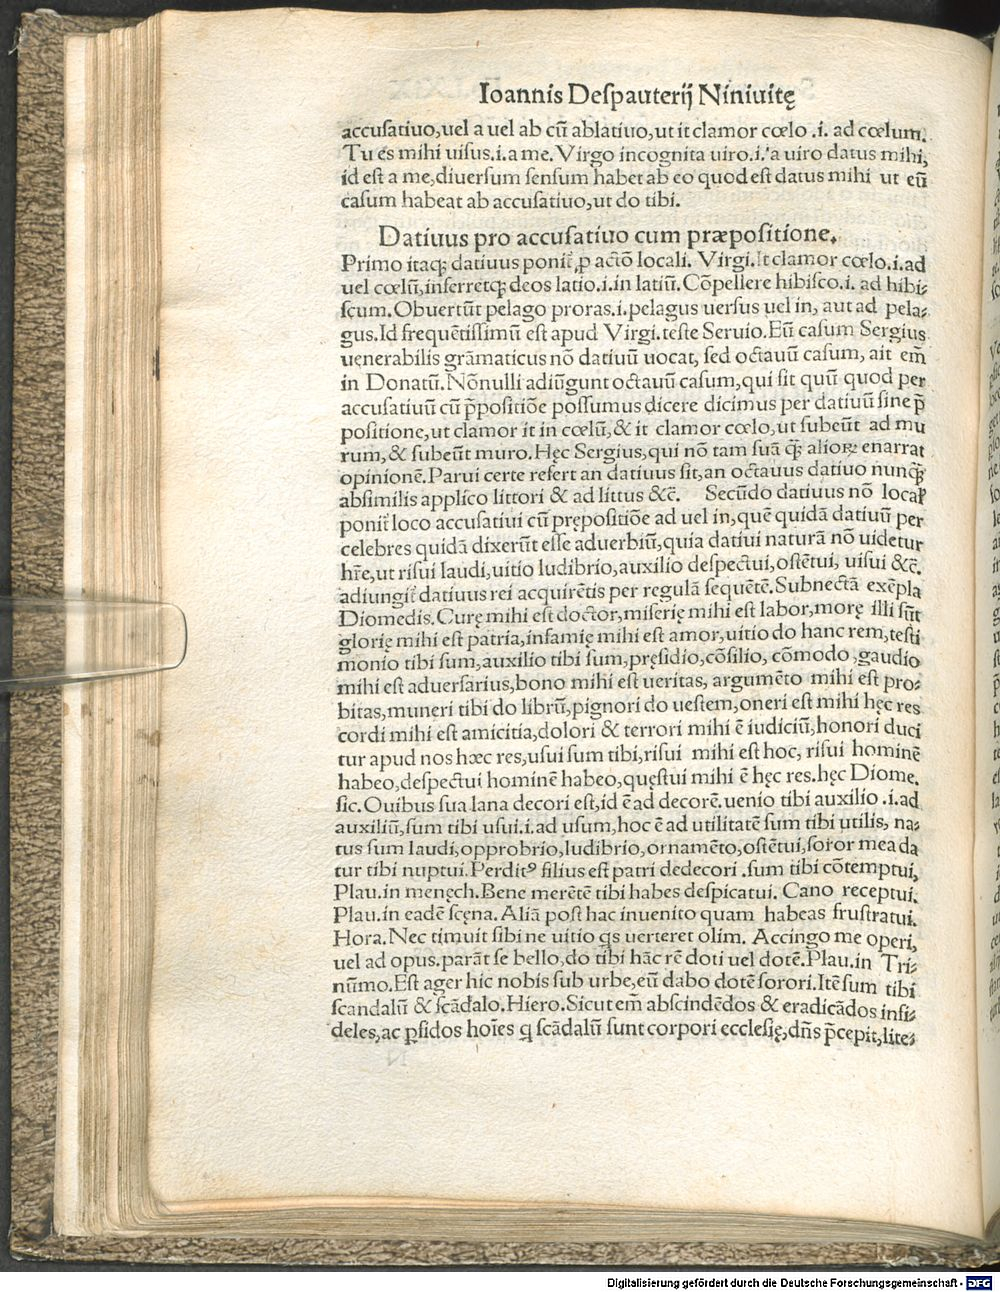 Ioannis Deſpauterij Niniuitę
accuſatiuo,uel a uel ab cū ablatiuo,ut it clamor cœlo .i. ad cœlum.
Tu es mihi uiſus.i.a me. Virgo incognita uiro.i.a uiro datus mihi,
id eſt a me,diuerſum ſenſum habet ab eo quod eſt datus mihi ut eū
caſum habeat ab accuſatiuo,ut do tibi.
Datiuus pro accuſatiuo cum præpoſitione.
Primo itaqꝫ datiuus ponit̄ ꝓ actō locali. Virgi.It clamor cœlo.i.ad
uel cœlū,inferretqꝫ deos latio.i.in latiū. Cōpellere hibiſco.i. ad hibi⸗
ſcum.Obuertūt pelago proras.i.pelagus uerſus uel in, aut ad pela⸗
gus.Id frequētiſſimū eſt apud Virgi.teſte Seruio.Eū caſum Sergius
uenerabilis grāmaticus nō datiuū uocat, ſed octauū caſum, ait em̄
in Donatū.Nōnulli adiūgunt octauū caſum,qui ſit quū quod per
accuſatiuū cū p̄poſitiōe poſſumus dicere dicimus per datiuū ſine p̄
poſitione,ut clamor it in cœlū,& it clamor cœlo,ut ſubeūt ad mu
rum,& ſubeūt muro.Hęc Sergius,qui nō tam ſuā q̄ꝫ alioꝝ enarrat
opinionē.Parui certe refert an datiuus ſit,an octauus datiuo nunq̄ꝫ
abſimilis applico littori & ad littus &c̄. Secūdo datiuus nō local̄
ponit̄ loco accuſatiui cū prępoſitiōe ad uel in,quē quidā datiuū per
celebres quidā dixerūt eſſe aduerbiū,quia datiui naturā nō uidetur
hr̄e,ut riſui laudi,uitio ludibrio,auxilio deſpectui,oſtētui, uiſui &c̄.
adiungit̄ datiuus rei acquirētis per regulā ſequētē.Subnectā exēpla
Diomedis.Curę mihi eſt doctor,miſerię mihi eſt labor,morę illi ſūt
glorię mihi eſt patria,infamię mihi eſt amor,uitio do hanc rem,teſti
monio tibi ſum,auxilio tibi ſum,pręſidio,cōſilio, cōmodo ,gaudio
mihi eſt aduerſarius,bono mihi eſt ueritas, argumēto mihi eſt pro⸗
bitas,muneri tibi do librū,pignori do ueſtem,oneri eſt mihi hęc res
cordi mihi eſt amicitia,dolori & terrori mihi ē iudiciū,honori duci
tur apud nos hæc res,uſui ſum tibi,riſui mihi eſt hoc, riſui hominē
habeo,deſpectui hominē habeo,quęſtui mihi ē hęc res.hęc Diome.
ſic.Ouibus ſua lana decori eſt,id ē ad decorē.uenio tibi auxilio .i.ad
auxiliū,ſum tibi uſui.i.ad uſum,hoc ē ad utilitatē ſum tibi utilis, na⸗
tus ſum laudi,opprobrio,ludibrio,ornamēto,oſtētui,ſoror mea da
tur tibi nuptui.Perditꝰ filius eſt patri dedecori .ſum tibi cōtemptui,
Plau.in menęch.Bene merētē tibi habes deſpicatui. Cano receptui.
Plau.in eadē ſcęna.Aliā poſt hac inuenito quam habeas fruſtratui.
Hora.Nec timuit ſibi ne uitio q̄s uerteret olim. Accingo me operi,
uel ad opus.parāt ſe bello,do tibi hāc rē doti uel dotē.Plau.in Tri⸗
nūmo.Eſt ager hic nobis ſub urbe,eū dabo dotē ſorori.Itē ſum tibi
ſcandalū & ſcādalo.Hiero.Sicut em̄ abſcindēdos & eradicādos infi⸗
deles,ac ꝑfidos hoīes q̄ ſcādalū ſunt corpori eccleſię,dn̄s p̄cępit,lite⸗
Digitalisierung gefördert durch die Deutsche Forschungsgemeinschaft - DFG